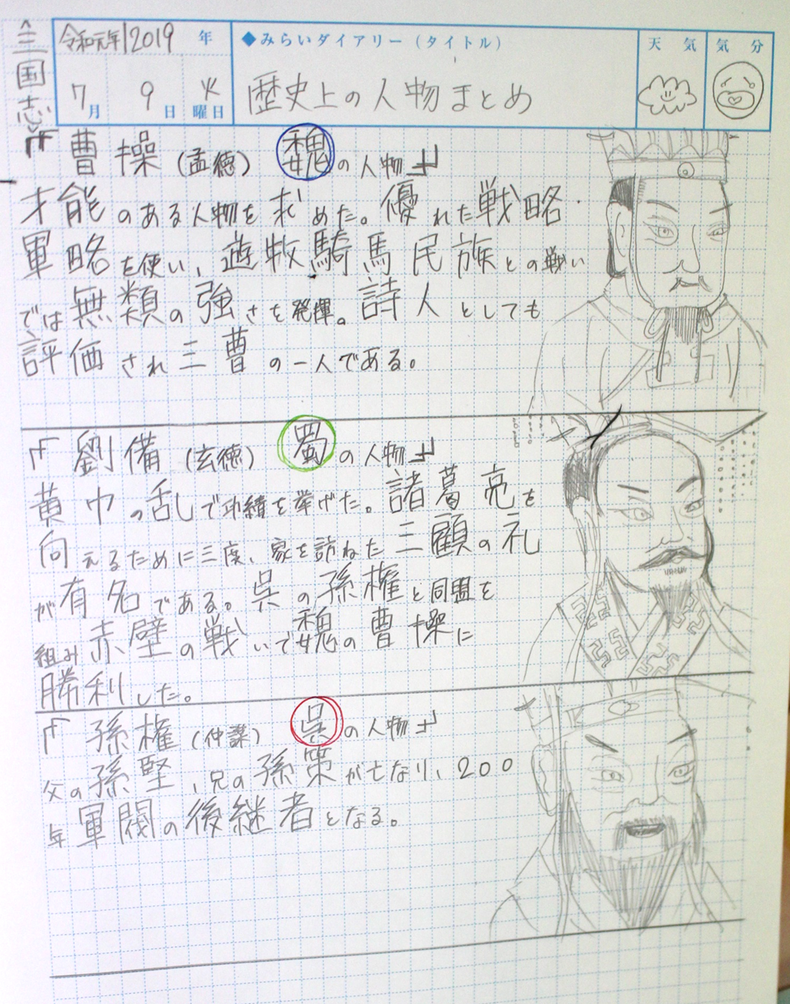 三国志
令和元年/2019 年
◆みらいダイアリー（タイトル）
天気
気分
7月 9日 火曜日
歴史上の人物まとめ
『曹操（孟徳） 魏の人物』
才能のある人物を求めた。優れた戦略・
軍略を使い、遊牧騎馬民族との戦い
では無類の強さを発揮。詩人としても
評価され三曹の一人である。
『劉備（玄徳） 蜀の人物』
黄巾の乱で功績を挙げた。諸葛亮を
向えるために三度、家を訪ねた三顧の礼
が有名である。呉の孫権と同盟を
組み赤壁の戦いで魏の曹操に
勝利した。
『孫権（仲謀） 呉の人物』
父の孫堅、兄の孫策が亡なり、200
年軍閥の後継者となる。